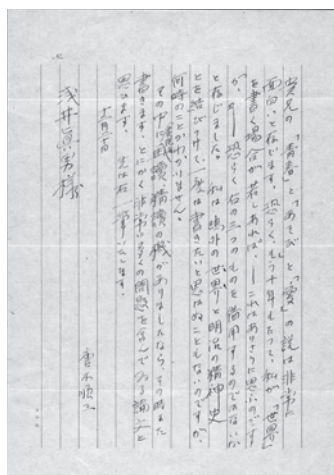 賢兄の「青春」と「あそび」と「愛」の説は非常に
面白いと存じます。恐らく、もう十年もたつて、私が「世界」
を書く場合が若しあれば、――これはありさうに思ふのです
が、――恐らく右の三つのものを借用するのではないか
と存じました。私は鴎外の「世界」と明治の精神史
とを結びつけて一度は書きたいと思はぬこともないのですが、
何時のことかわかりません。
その中に再読、精読の機がありましたなら、その時また
書きます。とにかく非常に多くの問題を含んでゐる論文と
思ひます。先は右一筆いたします。
十一月一日
浅井眞男様